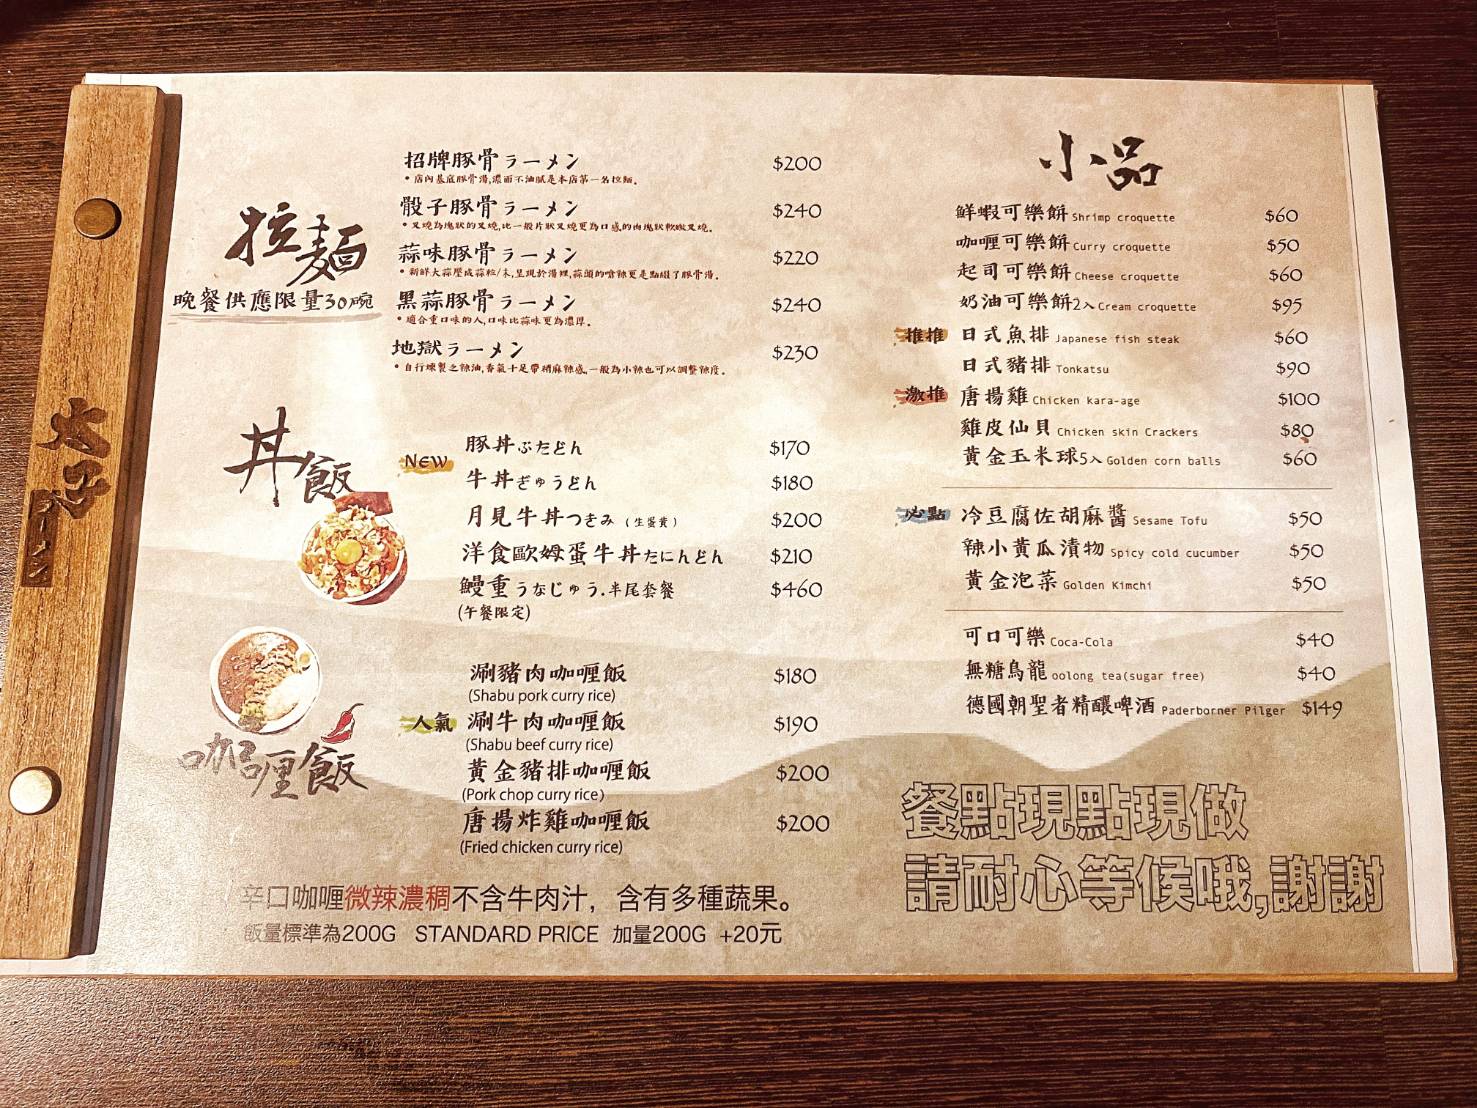 太子
ラーメン
拉麺
晚餐供應限量30碗
招牌豚骨ラーメン $200
•店內基底豚骨湯,濃而不油膩是本店第一名拉麵。
骰子豚骨ラーメン $240
•叉燒為塊狀的叉燒,比一般片狀叉燒更為口感的肉塊狀軟嫩叉燒。
蒜味豚骨ラーメン $220
•新鮮大蒜壓成蒜粒/末,呈現於湯裡,蒜頭的嗆辣更是點綴了豚骨湯。
黑蒜豚骨ラーメン $240
•適合重口味的人,口味比蒜味更為濃厚。
地獄ラーメン $230
•自行煉製之辣油,香氣十足帶稍麻辣感,一般為小辣也可以調整辣度。
丼飯
豚丼ぶたどん $170
NEW
牛丼ぎゅうどん $180
月見牛丼つきみ(生蛋黃) $200
洋食歐姆蛋牛丼たにんどん $210
鰻重うなじゅう.半尾套餐 $460
(午餐限定)
咖哩飯
涮豬肉咖喱飯 $180
(Shabu pork curry rice)
人氣 涮牛肉咖喱飯 $190
(Shabu beef curry rice)
黃金豬排咖喱飯 $200
(Pork chop curry rice)
唐揚炸雞咖喱飯 $200
(Fried chicken curry rice)
辛口咖喱微辣濃稠不含牛肉汁，含有多種蔬果。
飯量標準為200G STANDARD PRICE 加量200G +20元
小品
鮮蝦可樂餅 Shrimp croquette $60
咖喱可樂餅 Curry croquette $50
起司可樂餅 Cheese croquette $60
奶油可樂餅2入 Cream croquette $95
推推 日式魚排 Japanese fish steak $60
日式豬排 Tonkatsu $90
激推 唐揚雞 Chicken kara-age $100
雞皮仙貝 Chicken skin Crackers $80
黃金玉米球5入 Golden corn balls $60
必點 冷豆腐佐胡麻醬 Sesame Tofu $50
辣小黃瓜漬物 Spicy cold cucumber $50
黃金泡菜 Golden Kimchi $50
可口可樂 Coca-Cola $40
無糖烏龍 oolong tea(sugar free) $40
德國朝聖者精釀啤酒 Paderborner Pilger $149
餐點現點現做
請耐心等候哦,謝謝